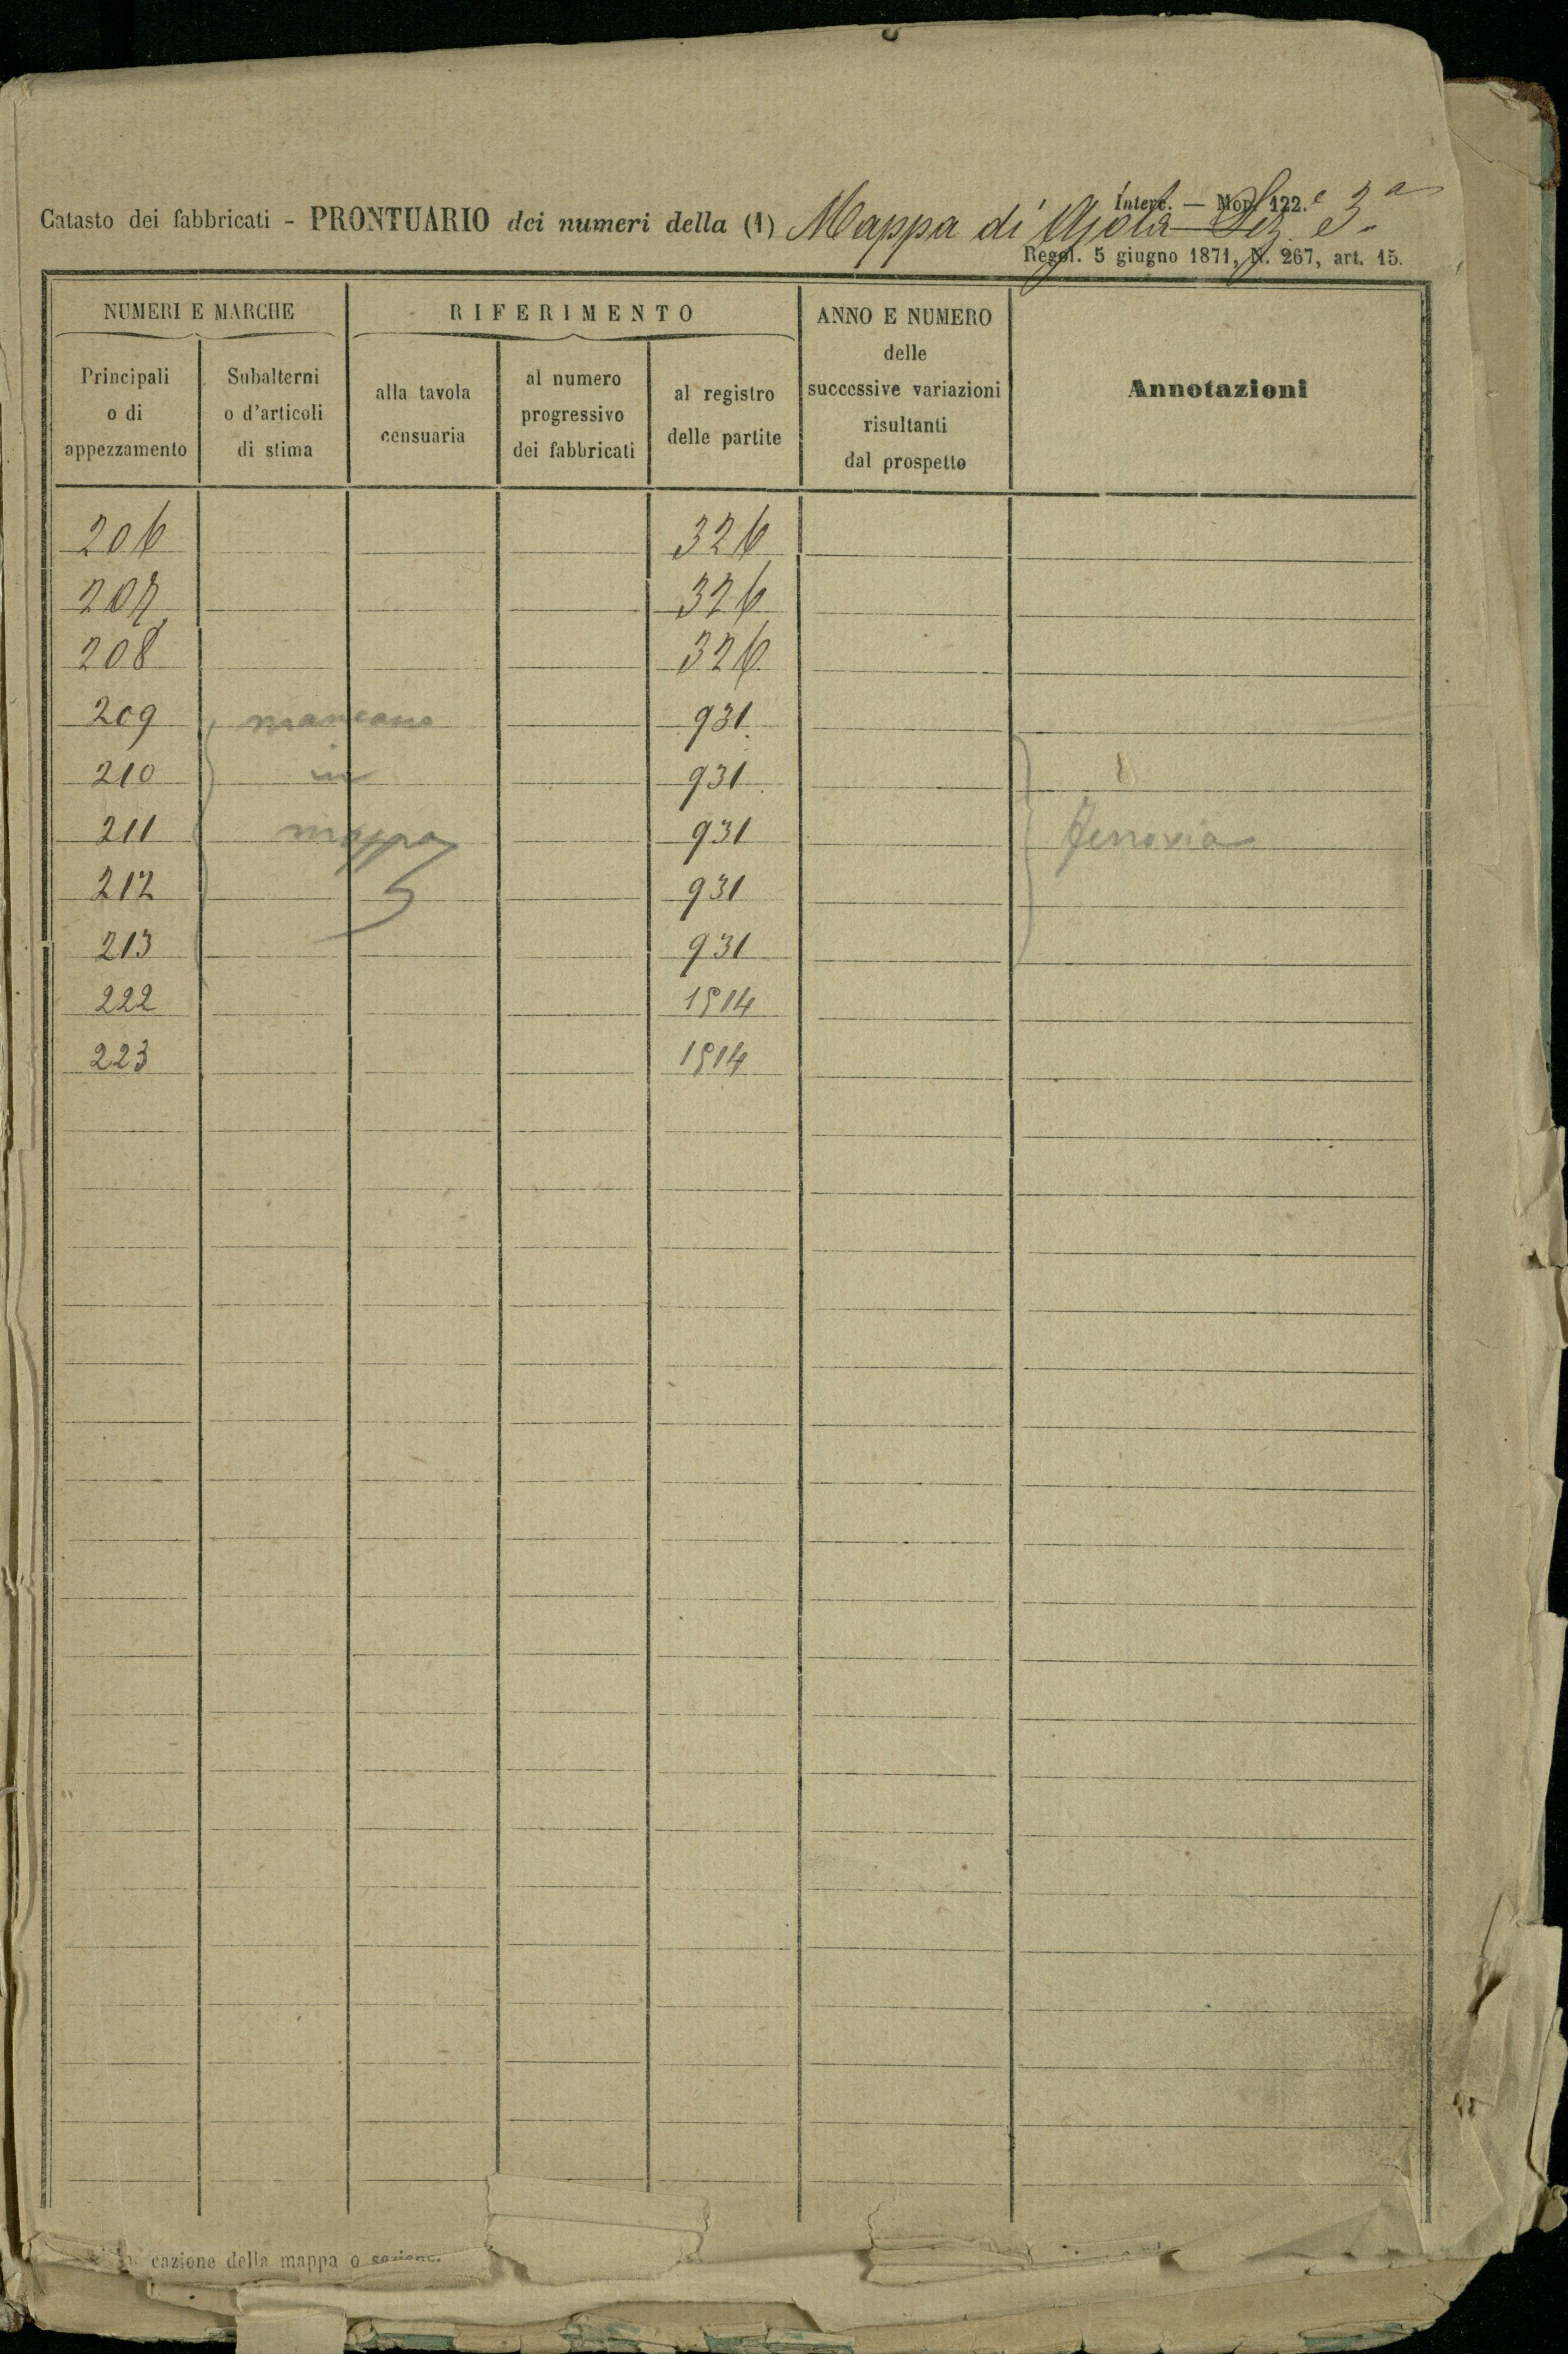 Interf. — Mod. 122.
Catasto dei fabbricati - PRONTUARIO dei numeri della (1) Mappa di Ajola Sez.e 3.a
Regol. 5 giugno 1871, N. 267, art. 15.
NUMERI E MARCHE
RIFERIMENTO
ANNO E NUMERO
delle
successive variazioni
risultanti
dal prospetto
Annotazioni
Principali
o di
appezzamento
Subalterni
o d'articoli
di stima
alla tavola
censuaria
al numero
progressivo
dei fabbricati
al registro
delle partite
206 326
207 326
208 326
209 mancano 931
210 in 931
211 mappa 931 ferrovia
212 931
213 931
222 1914
223 1914
cazione della mappa o sezione.